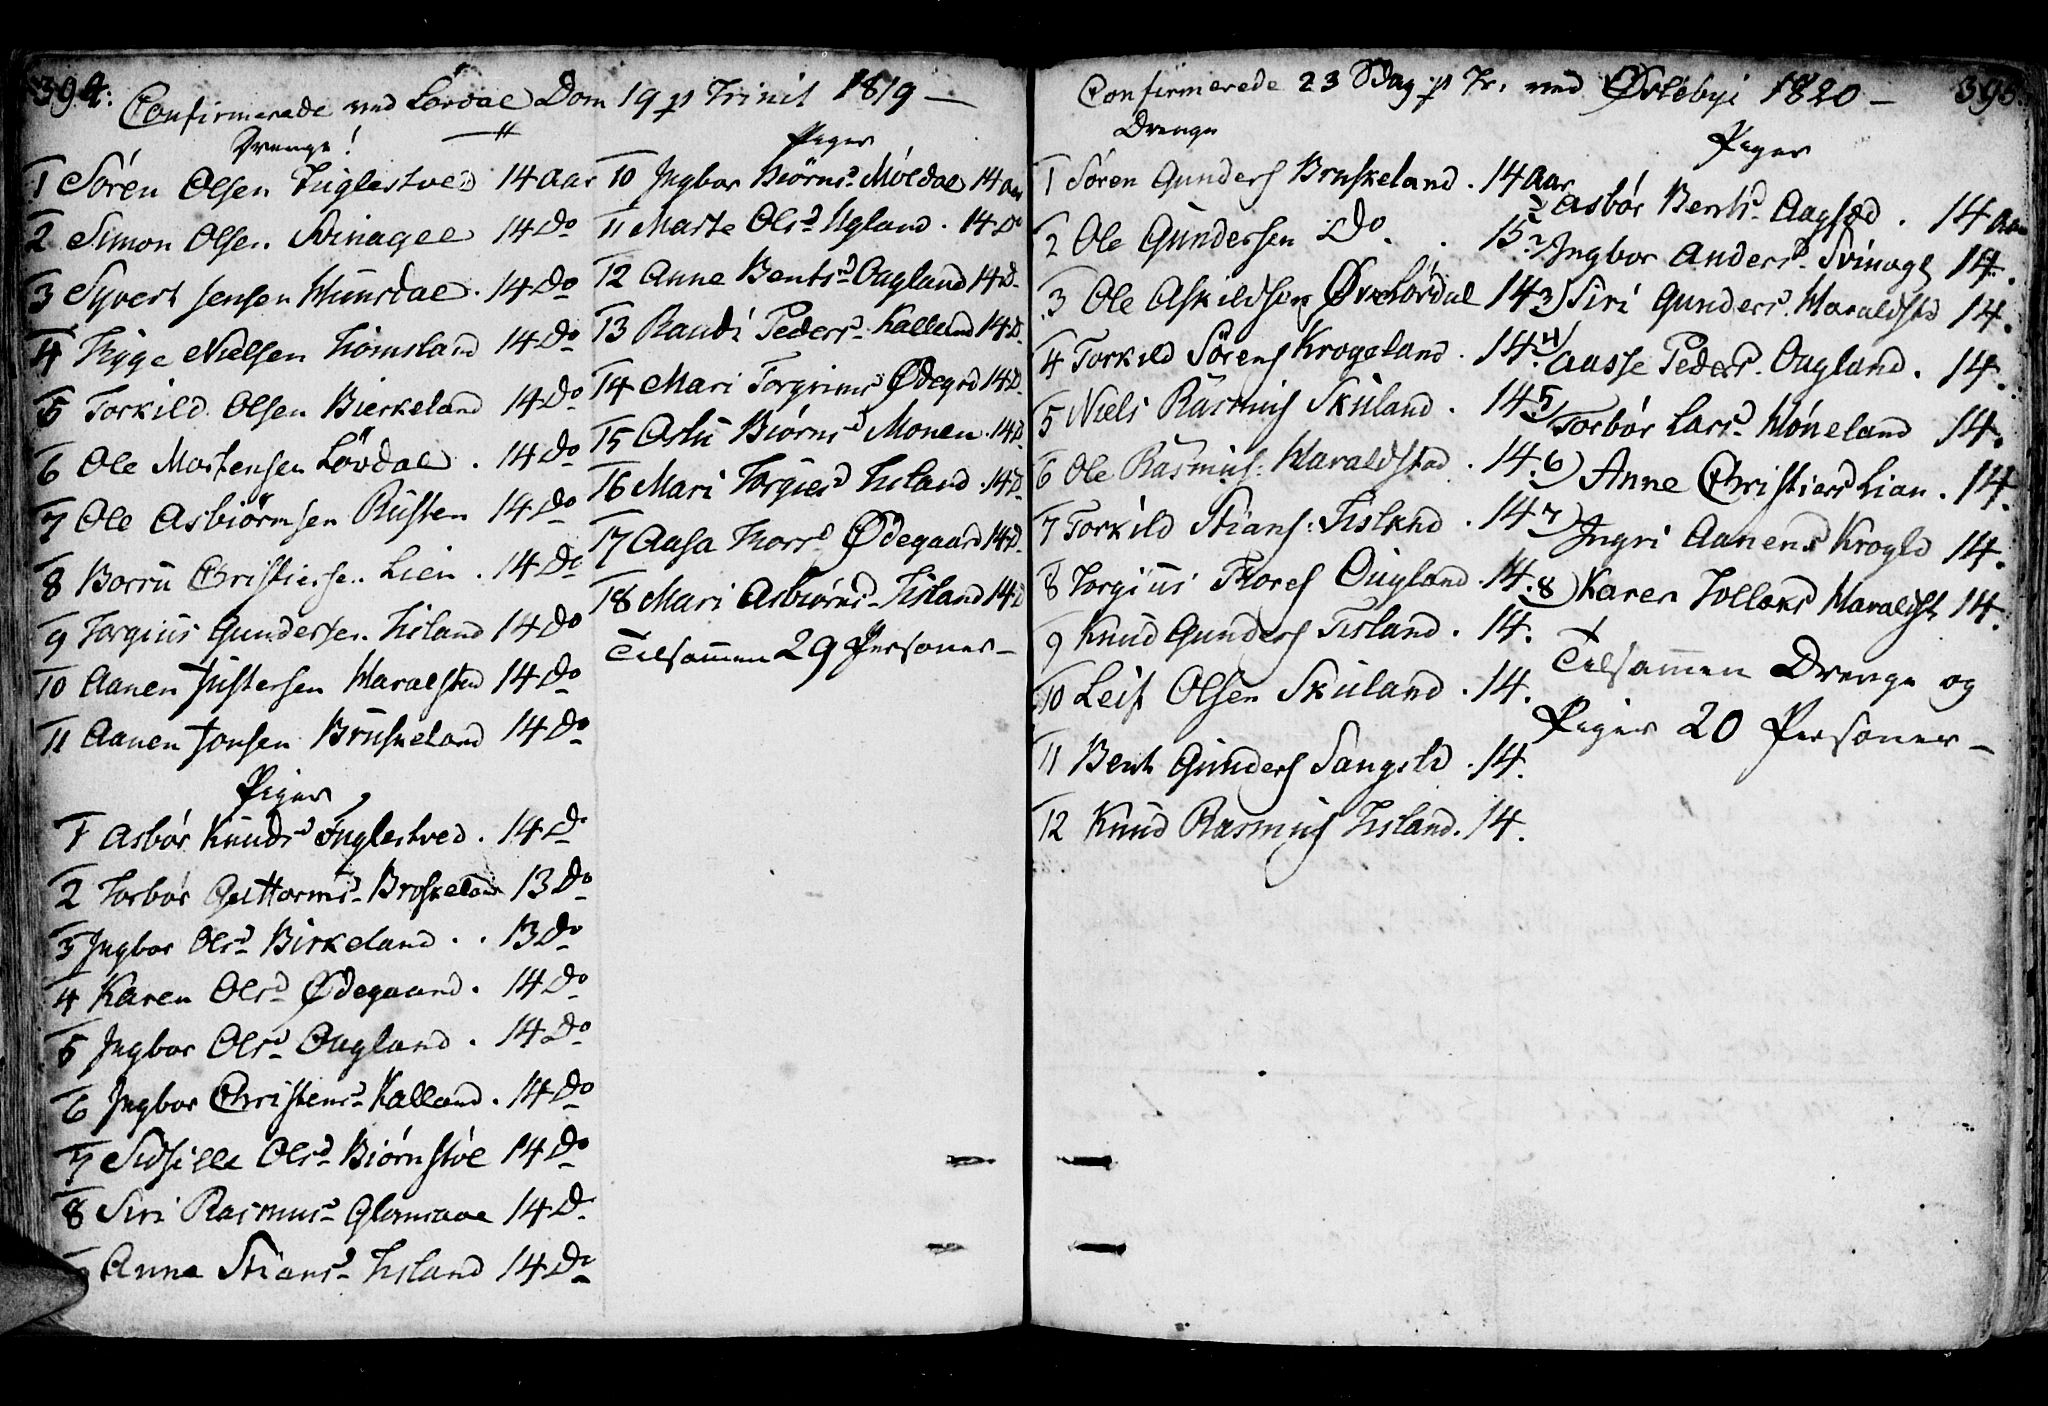 394.
Confirmerede ved Løvdal Dom 19 p Trinit 1819 —
Drenge!
1 Sören Olsen Fuglestved 14 Aar
2 Simon Olsen Svinagel 14 Do
3 Syvert Jensen Hunsdal. 14 Do
4 Tyge Nielsen Homsland 14 Do
5 Torkild Olsen Bierkeland 14 Do
6 Ole Mortensen Lövdal. 14 Do
7 Ole Asbiörnsen Rüsten 14 Do
8 Borrü Christiersen Lien. 14 Do
9 Torgiüs Gundersen Tisland 14 Do
10 Aanen Justersen Haralsted 14 Do
11 Aanen Jonsen Brüskeland 14 Do
Piger
1 Asbór Knüdsd Fuglestved. 14 D.
2 Torbór Guttormsd Broskeland 13 Do
3 Ingbor Olsd Birkeland . . 13 Do
4 Karen Olsd Ødegaard. 14 Do
5 Ingbor Olsd Ougland. 14 Do
6 Ingbor Christensd Kalland. 14 Do
7 Sidsille Olsd Biörnstöl 14 Do
8 Siri Rasmusd 14 D.
Anne Stiansd Tisland 14 Do
Piger
10 Ingbor Biörnsd Möldal 14 Aar
11 Marte Olsd Ugland. 14 D
12 Anne Bentsd Ougland 14 D.
13 Randi Pedersd Kalland 14 D.
14 Mari Torgrimsd Ødegrd 14 D.
15 Aslü Biörnsd Monen. 14 D.
16 Mari Torgiusd Tisland. 14 D.
17 Aasa Thorsd Ødegaard 14 D.
18 Mari Asbiörnsd Tisland 14 D
Tilsamen 29 Personer —
Confirmerede 23 Sdag p Tr. ved Øvlebye 1820 — 395.
Drenge
1 Sören Gunders Bruskeland. 14 Aar
2 Ole Gundersen Do. . 15
3 Ole Askildsen Øvrlördal 14
4 Torkild Sörens Krogeland. 14.
5 Niels Rasmus Skuland. 14
6 Ole Rasmus: Haraldstad. 14.
7 Torkild Stians: Tisland. 14
8 Torgius Thores Ougland. 14.
9 Knüd Gunders Tisland. 14.
10 Leif Olsen Skuland. 14.
11 Bent Gunders Sangeld. 14.
12 Knüd Rasmus Tisland. 14.
Piger
1 Asbór Bentsd Aagsæd. 14 Aar
2 Ingbor Andersd Svinagl 14.
3) Siri Gundersd Haraldstd 14.
4) Aasse Pedersd Ougland. 14.
5) Torbór Larsd Höneland 14.
6) Anne Christiersd Lian. 14.
7) Ingri Aanensd Krogld 14.
8) Karen Tollaksd Haraldst 14.
Tilsamen Drenge og
Piger 20 Personer —